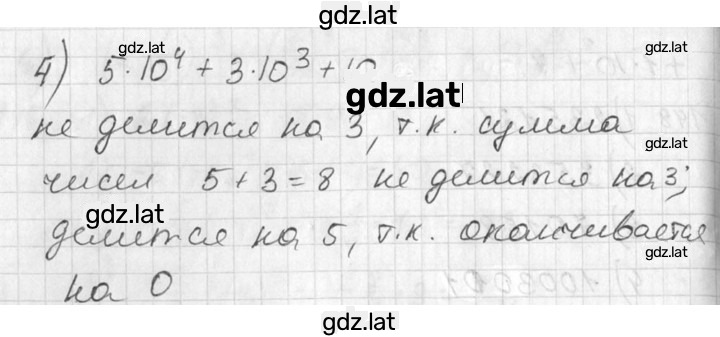 gdz.lat
gdz.lat
4) 5·10⁴ + 3·10³ + 10
gdz.lat
gdz.lat
не делится на 3, т.к. сумма
gdz.lat
чисел 5 + 3 = 8 не делится на 3;
gdz.lat
делится на 5, т.к. оканчивается
gdz.lat
на 0
gdz.lat